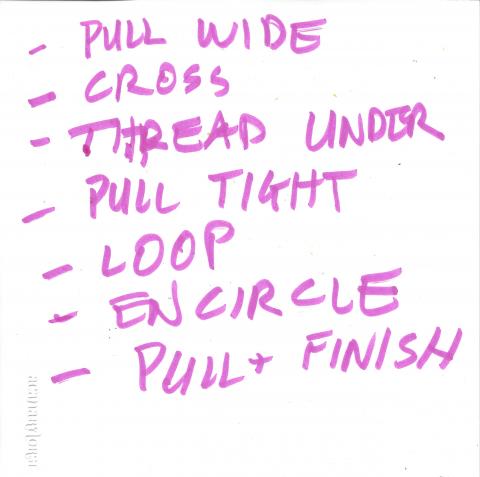 - PULL WIDE
- CROSS
- THREAD UNDER
- PULL TIGHT
- LOOP
- ENCIRCLE
- PULL + FINISH